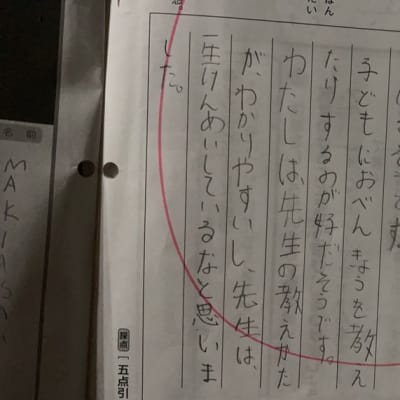 はん
にい
です。
子どもにおべんきょうを教え
たりするのが好だそうです。
わたしは、先生の教えかた
が、わかりやすいし、先生は、
一生けんめいしているなと思いま
した。
採点 一五点引
名前
MAKIASA